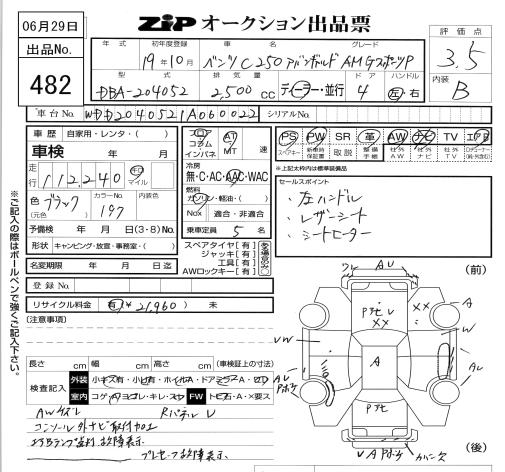 06月29日
出品No.
482
ZIP オークション出品票
評価点
3.5
内装
B
年式 初年度登録 車名 グレード
19年10月 ベンツC250 アバンギャルド AMGスポーツP
型式 排気量 ドア ハンドル
DBA-204052 2,500cc ディーラー・並行 4 左・右
車台No. WDD2040521A060022 シリアルNo.
車歴 自家用・レンタ・( )
車検 年 月
走行 112,240 キロ マイル
色 (元色) ブラック カラーNo. 197 内装色
予備検 年 月 日(3・8)No.
形状 キャンピング・放宣・事務室・( )
名変期限 年 月 日迄
登録No.
リサイクル料金 有(¥ 21,960) 未
(注意事項)
フロア コラム インパネ AT MT 速
冷房
無・C・AC・AAC・WAC
燃料
ガソリン・軽油・( )
Nox 適合・非適合
乗車定員 5 名
スペアタイヤ[有]
ジャッキ[有]
工具[有]
AWロックキー[有]
PS PW SR 革 AW ナビ TV エアB
スペアキー 新車時保証書 取説 整備手帳 社外AW 社外ナビ 社外TV
*上記太枠内は標準装備品
セールスポイント
・左ハンドル
・レザーシート
・シートヒーター
※ご記入の際はボールペンで強くご記入下さい。
長さ cm 幅 cm 高さ cm (車検証上の寸法)
検査記入 外装 小キズ有・小凹有・ホイルA・ドアミラーA・
室内 コゲ・穴・ヨゴレ・キレ・スレ FW トビ石・A・X要ス
AWキズレ Rパネル U
コンソール外ナビ取付加工
故障表示
故障表示
(前)
(後)
ウレ AU
A
XX
W
VW
AU
Pヂヒ U
XX
A
Pヂヒ
AU
カバー欠